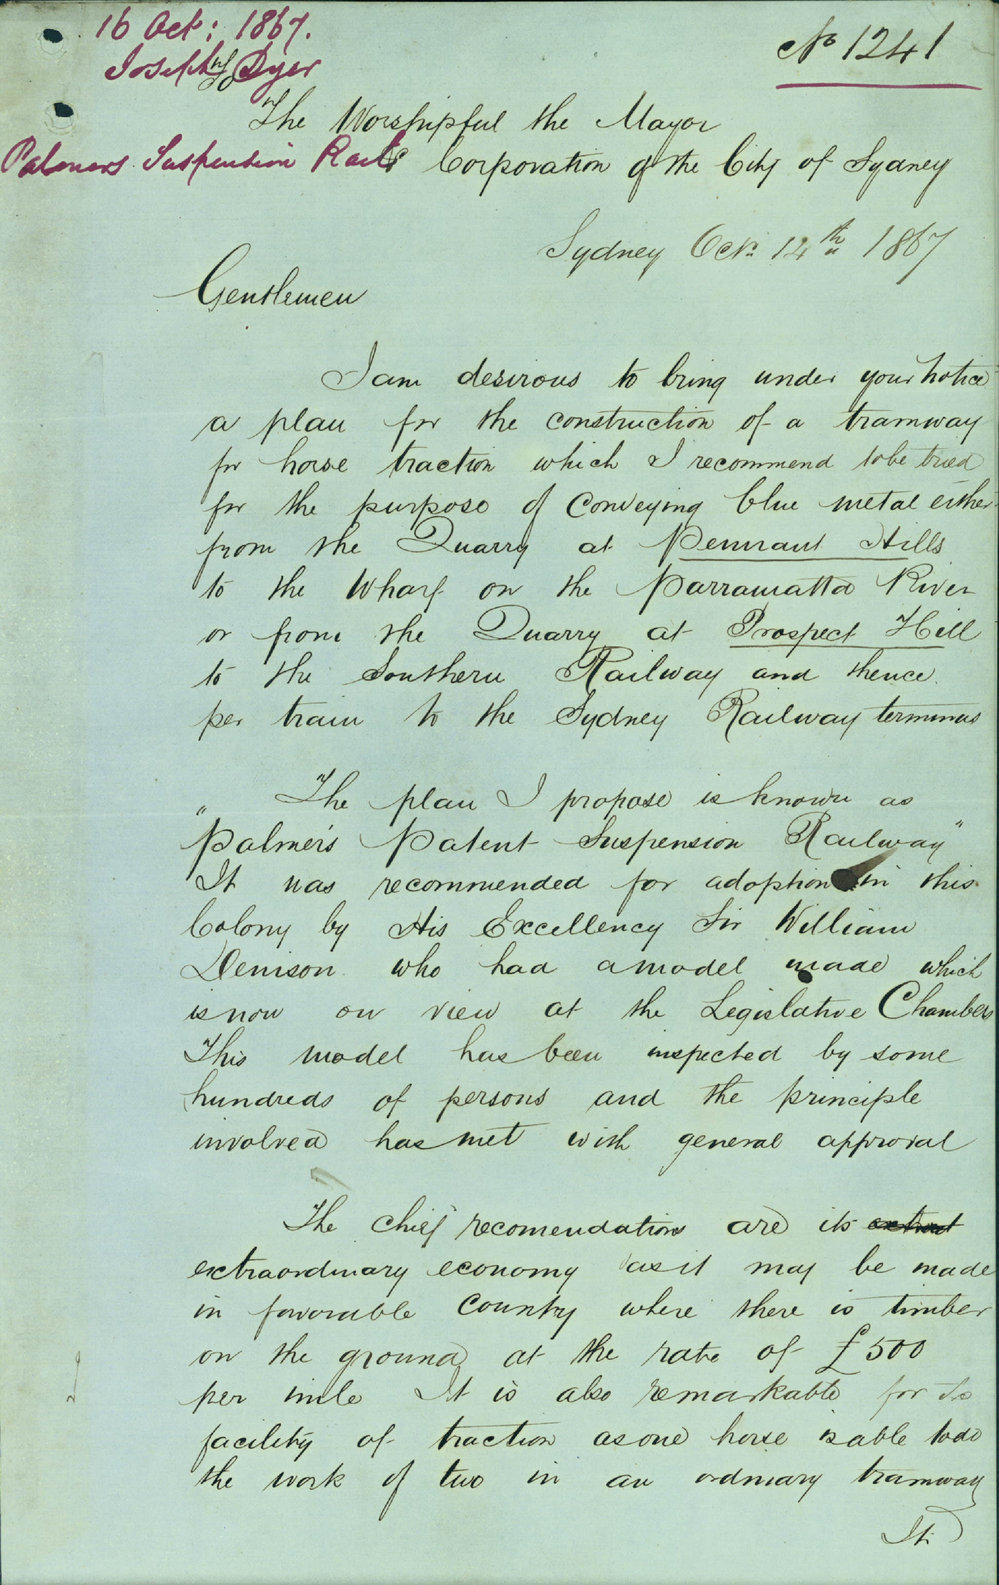 16 Oct: 1867.
No 1241
Joseph Dyer
The Worshipful the Mayor
Palmers Suspension Rail
& Corporation of the City of Sydney
Sydney Oct. 14th 1867
Gentlemen
I am desirous to bring under your notice
a plan for the construction of a tramway
for horse traction which I recommend to be tried
for the purpose of conveying blue metal either
from the Quarry at Pennant Hills
to the Wharf on the Parramatta River
or from the Quarry at Prospect Hill
to the Southern Railway and thence
per train to the Sydney Railway terminus
The plan I propose is known as
"Palmer's Patent Suspension Railway"
It was recommended for adoption in this
Colony by His Excellency Sir William
Denison who had a model made which
is now on view at the Legislative Chambers
This model has been inspected by some
hundreds of persons and the principle
involved has met with general approval
The chief recomendations are its
extraordinary economy as it may be made
in favorable country where there is timber
on the ground at the rate of £500
per mile It is also remarkable for its
facility of traction as one horse is able to do
the work of two in an ordinary tramway
It